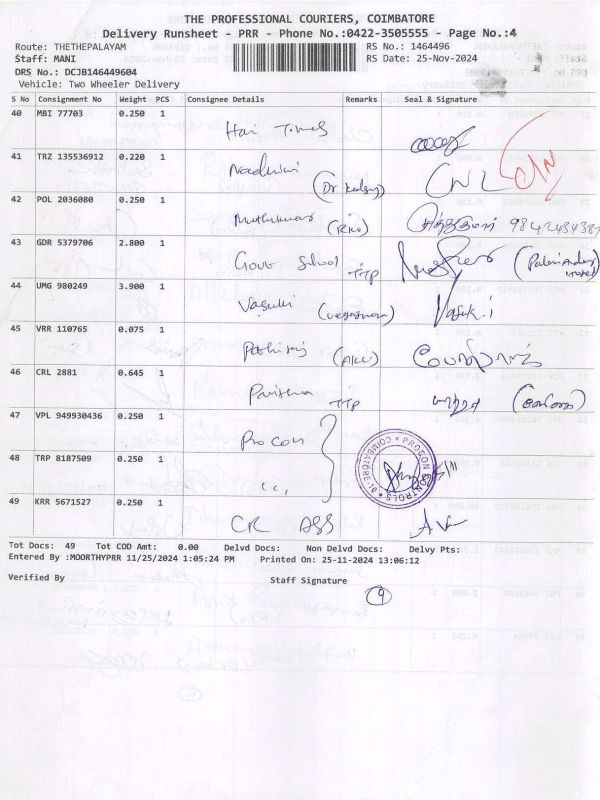 THE PROFESSIONAL COURIERS, COIMBATORE
Delivery Runsheet - PRR - Phone No.:0422-3505555 - Page No.:4
Route: THETHEPALAYAM RS No.: 1464496
Staff: MANI RS Date: 25-Nov-2024
DRS No.: DCJB146449604
Vehicle: Two Wheeler Delivery
S No Consignment No Weight PCS Consignee Details Remarks Seal & Signature
40 MBI 77703 0.250 1 Hai Times
41 TRZ 135536912 0.220 1 CNL
42 POL 2036080 0.250 1 Muthukumar (RKV)
43 GDR 5379706 2.800 1 Govt School TTP
44 UMG 980249 3.900 1 Vasuki Vasuki
45 VRR 110765 0.075 1
46 CRL 2881 0.645 1 Pavithra TTP
47 VPL 949930436 0.250 1 Pro con
PROSON CONTROLS * COIMBATORE
48 TRP 8187509 0.250 1 ,,
49 KRR 5671527 0.250 1 CR ASS
Tot Docs: 49 Tot COD Amt: 0.00 Delvd Docs: Non Delvd Docs: Delvy Pts:
Entered By :MOORTHYPRR 11/25/2024 1:05:24 PM Printed On: 25-11-2024 13:06:12
Verified By Staff Signature
9